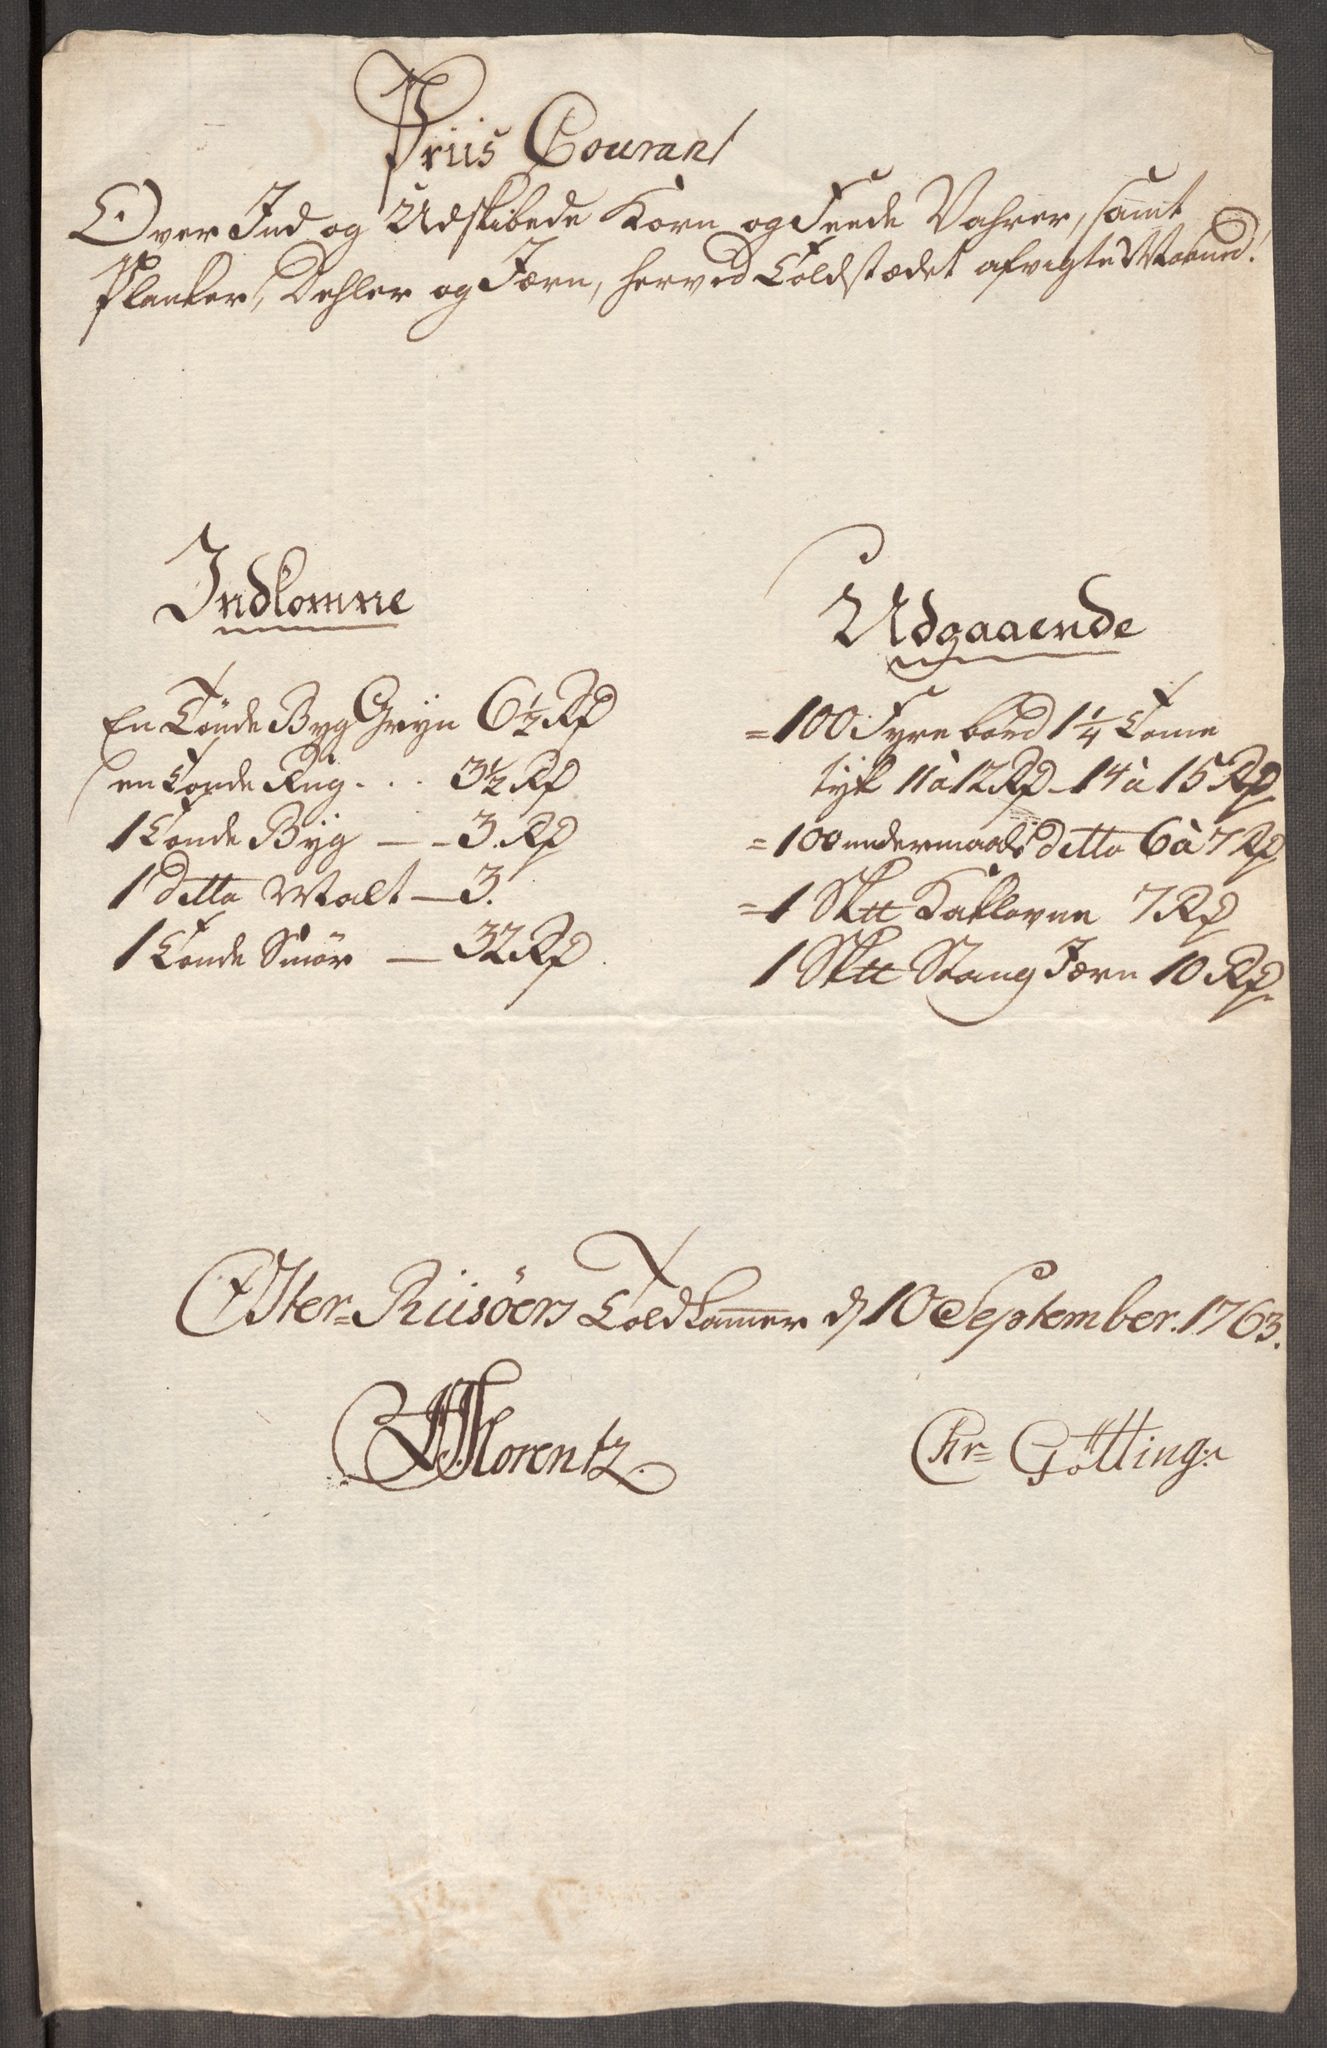 Priis Courant
Over Ind og Udskibede Korn og Feede Vahrer, samt
Planker, Dehler og Jærn, her ved Toldstædet afvigte Maaned.
Indkomne
En Tønde Byg Gryn 6½ Rd
en Tonde Rug. . . 3½ Rd
1 Tonde Byg — - 3. Rd
1 ditto Malt — 3.
1 Tonde Smør — 32 Rd.
Udgaaende
= 100 Fyre bord 1¼ Tome
tyk 11 à 12 Rd - 14 à 15 Rd
= 100 undermaals ditto 6 à 7 Rd
= 1 Sk℔ Kaklovne 7 Rd
1 Sk℔ Stang Jærn 10 Rd.
Øster-Riisöers Toldkammer d 10 September. 1763.
Florentz.
Chr= Götting.